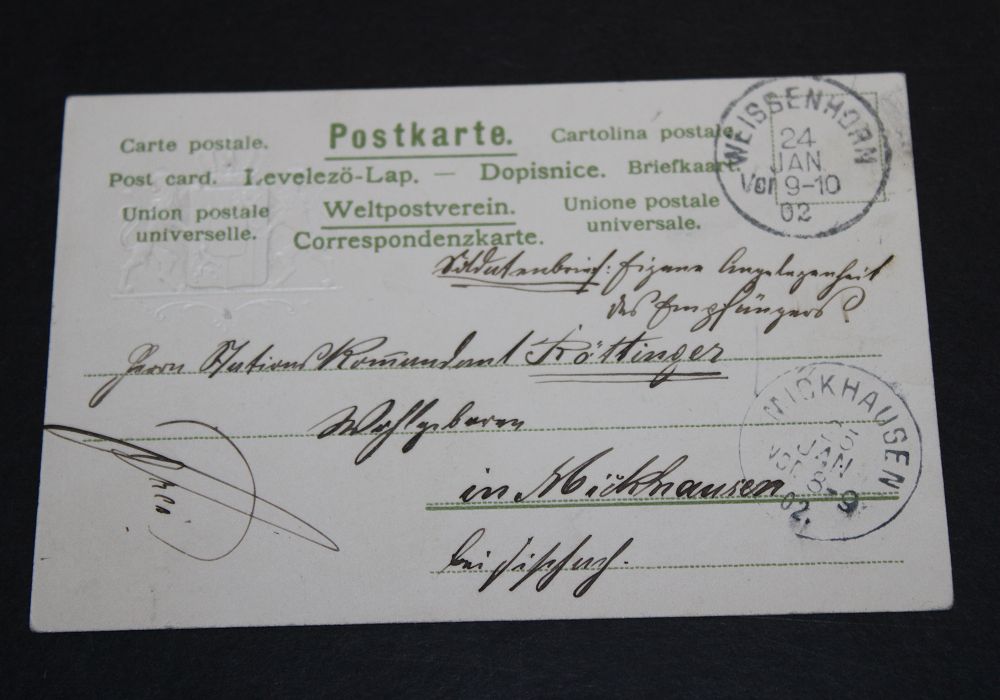 Carte postale. Postkarte. Cartolina postale.
Post card. Levelező-Lap. — Dopisnice. Briefkaart.
Union postale universelle. Weltpostverein. Unione postale universale.
Correspondenzkarte.
WEISSENHORN
24
JAN
Vor 9-10
02
Soldatenbrief: Eigene Angelegenheit
des Empfängers
Herrn Stations Kommandant Röttinger
Wohlgeboren
in Mickhausen
bei
MICKHAUSEN
JAN
Vor 8-9
02
frei